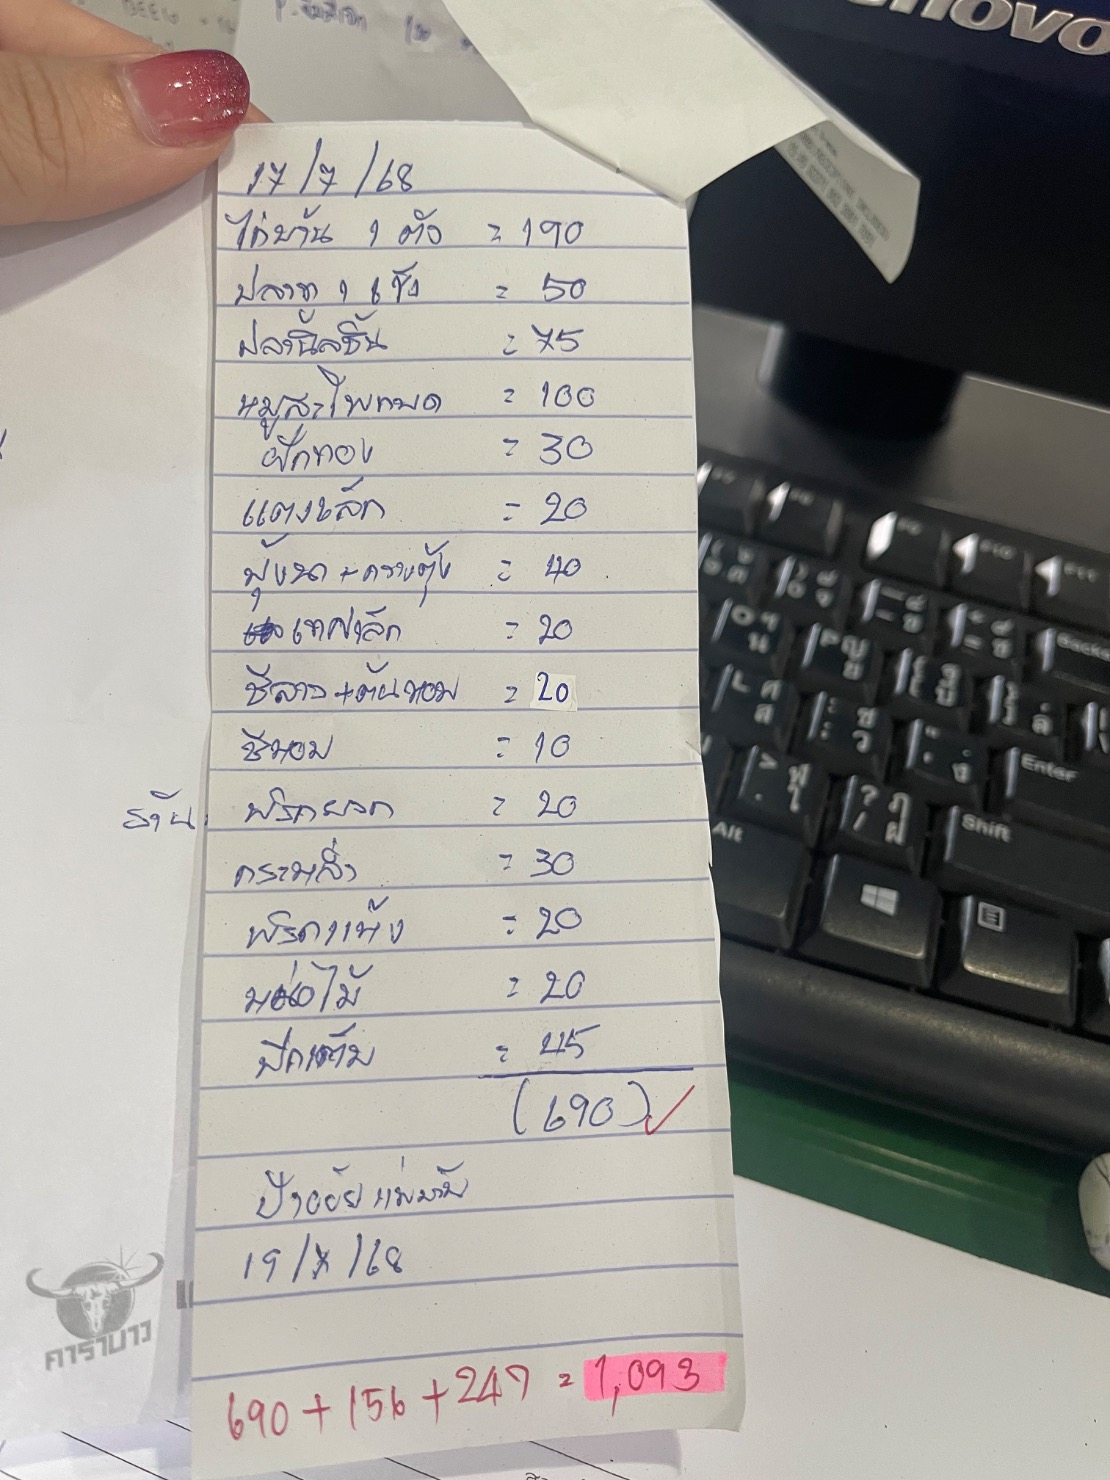 17/7/68
ไก่บ้าน 1 ตัว = 190
ปลาทู 1 เข่ง = 50
ปลานิลชิ้น = 75
หมูสะโพกบด = 100
ฟักทอง = 30
แตงเล็ก = 20
ผักบุ้งนา + กวางตุ้ง = 40
เทศเล็ก = 20
ชีลาว + ต้นหอม = 20
ชีหอม = 10
ร้าน
พริกหยวก = 20
กระหล่ำ = 30
พริกแห้ง = 20
หน่อไม้ = 20
ปีกเต็ม = 45
(690)
ป้าอ้อย แม่บ้าน
19/7/68
690 + 156 + 247 = 1,093
คาราบาว
Lenovo
Enter
Shift
Alt